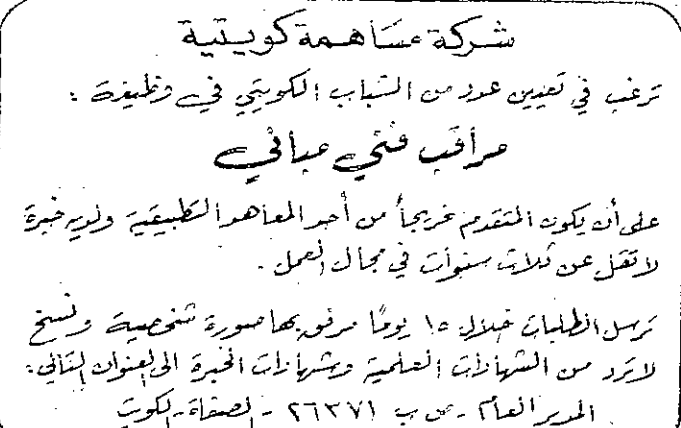 شركة مساهمة كويتية
ترغب في تعيين عدد من الشباب الكويتي في وظيفة :
مراقب فني مباني
على أن يكون المتقدم خريجاً من أحد المعاهد التطبيقية ولديه خبرة
لا تقل عن ثلاث سنوات في مجال العمل .
ترسل الطلبات خلال ١٥ يومًا مرفق بها صورة شخصية ونسخ
لا ترد من الشهادات العلمية وشهادات الخبرة الى العنوان التالي :
المدير العام - ص ب ٢٦٣٧١ - الصفاة - الكويت